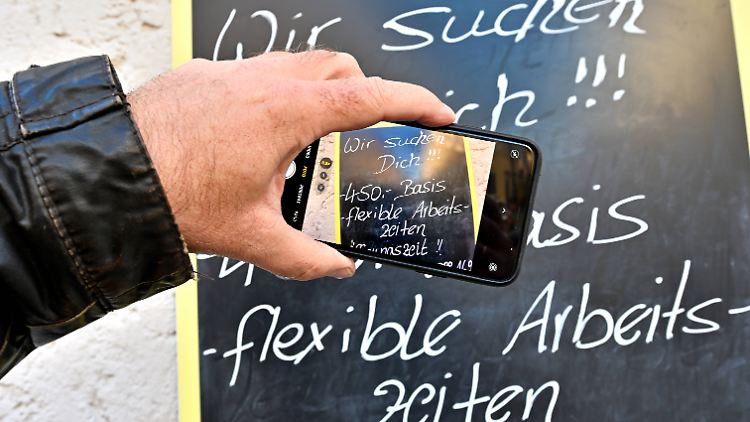 Wir suchen
Dich !!!
asis
-flexible Arbeits-
zeiten
Wir suchen
Dich !!!
-450.- Basis
-flexible Arbeits-
zeiten